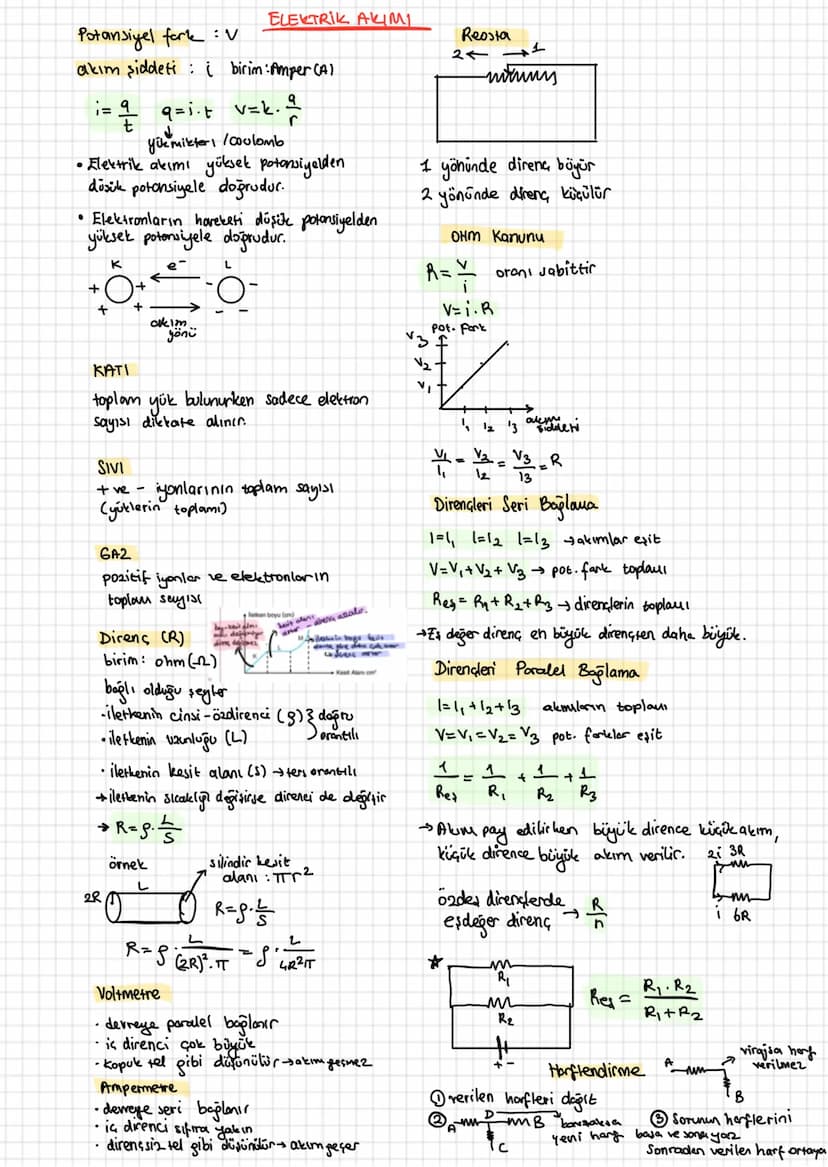 ELEKTRİK AKIMI
Potansiyel fark : V
akım şiddeti : i birim: Amper (A)
i = q/t q = i.t V = k. q/r
yük miktarı /coulomb
• Elektrik akımı yüksek potansiyelden
düşük potansiyele doğrudur.
• Elektronların hareketi düşük potansiyelden
yüksek potansiyele doğrudur.
K e⁻ L
+ + - -
+ + - -
akım
yönü
KATI
toplam yük bulunurken sadece elektron
sayısı dikkate alınır.
SIVI
+ ve - iyonlarının toplam sayısı
(yüklerin toplamı)
GAZ
pozitif iyonlar ve elektronların
toplam sayısı
Direnç (R)
birim: ohm (Ω)
İletken boyu (cm)
Kesit Alanı cm²
bağlı olduğu şeyler
- iletkenin cinsi - özdirenci (ρ) } doğru
• iletkenin uzunluğu (L) orantılı
• iletkenin kesit alanı (S) → ters orantılı
→ iletkenin sıcaklığı değişirse direnci de değişir
→ R = ρ. L/S
örnek silindir kesit
alanı : πr²
L
2R
R = ρ. L/S
R = ρ . L/(2R)².π = ρ . L/4R²π
Voltmetre
• devreye paralel bağlanır
• iç direnci çok büyük
• kopuk tel gibi düşünülür → akım geçmez
Ampermetre
• devreye seri bağlanır
• iç direnci sıfıra yakın
• dirençsiz tel gibi düşünülür → akım geçer
Reosta
2 ← → 1
1 yönünde direnç büyür
2 yönünde direnç küçülür
OHM Kanunu
R = V/i oranı sabittir
V = i.R
pot. fark
V3
V2
V1
I1 I2 I3 akım
şiddeti
V1/I1 = V2/I2 = V3/I3 = R
Dirençleri Seri Bağlama
I=I1 I=I2 I=I3 → akımlar eşit
V=V1+V2+V3 → pot. fark toplamı
Reş = R1+R2+R3 → dirençlerin toplamı
→ Eş değer direnç en büyük dirençten daha büyük.
Dirençleri Paralel Bağlama
I=I1+I2+I3 akımların toplamı
V=V1=V2=V3 pot. farklar eşit
1/Reş = 1/R1 + 1/R2 + 1/R3
→ Akım pay edilirken büyük dirence küçük akım,
küçük dirence büyük akım verilir.
2i 3R
i 6R
özdeş dirençlerde
eşdeğer direnç → R/n
R1
R2
+ -
Reş = R1.R2/R1+R2
Harflendirme
A
virajsa harf
verilmez
B
① verilen harfleri dağıt
② A D B
C
yeni harf
③ sorunun harflerini
başa ve sona yaz
Sonradan verilen harf ortaya